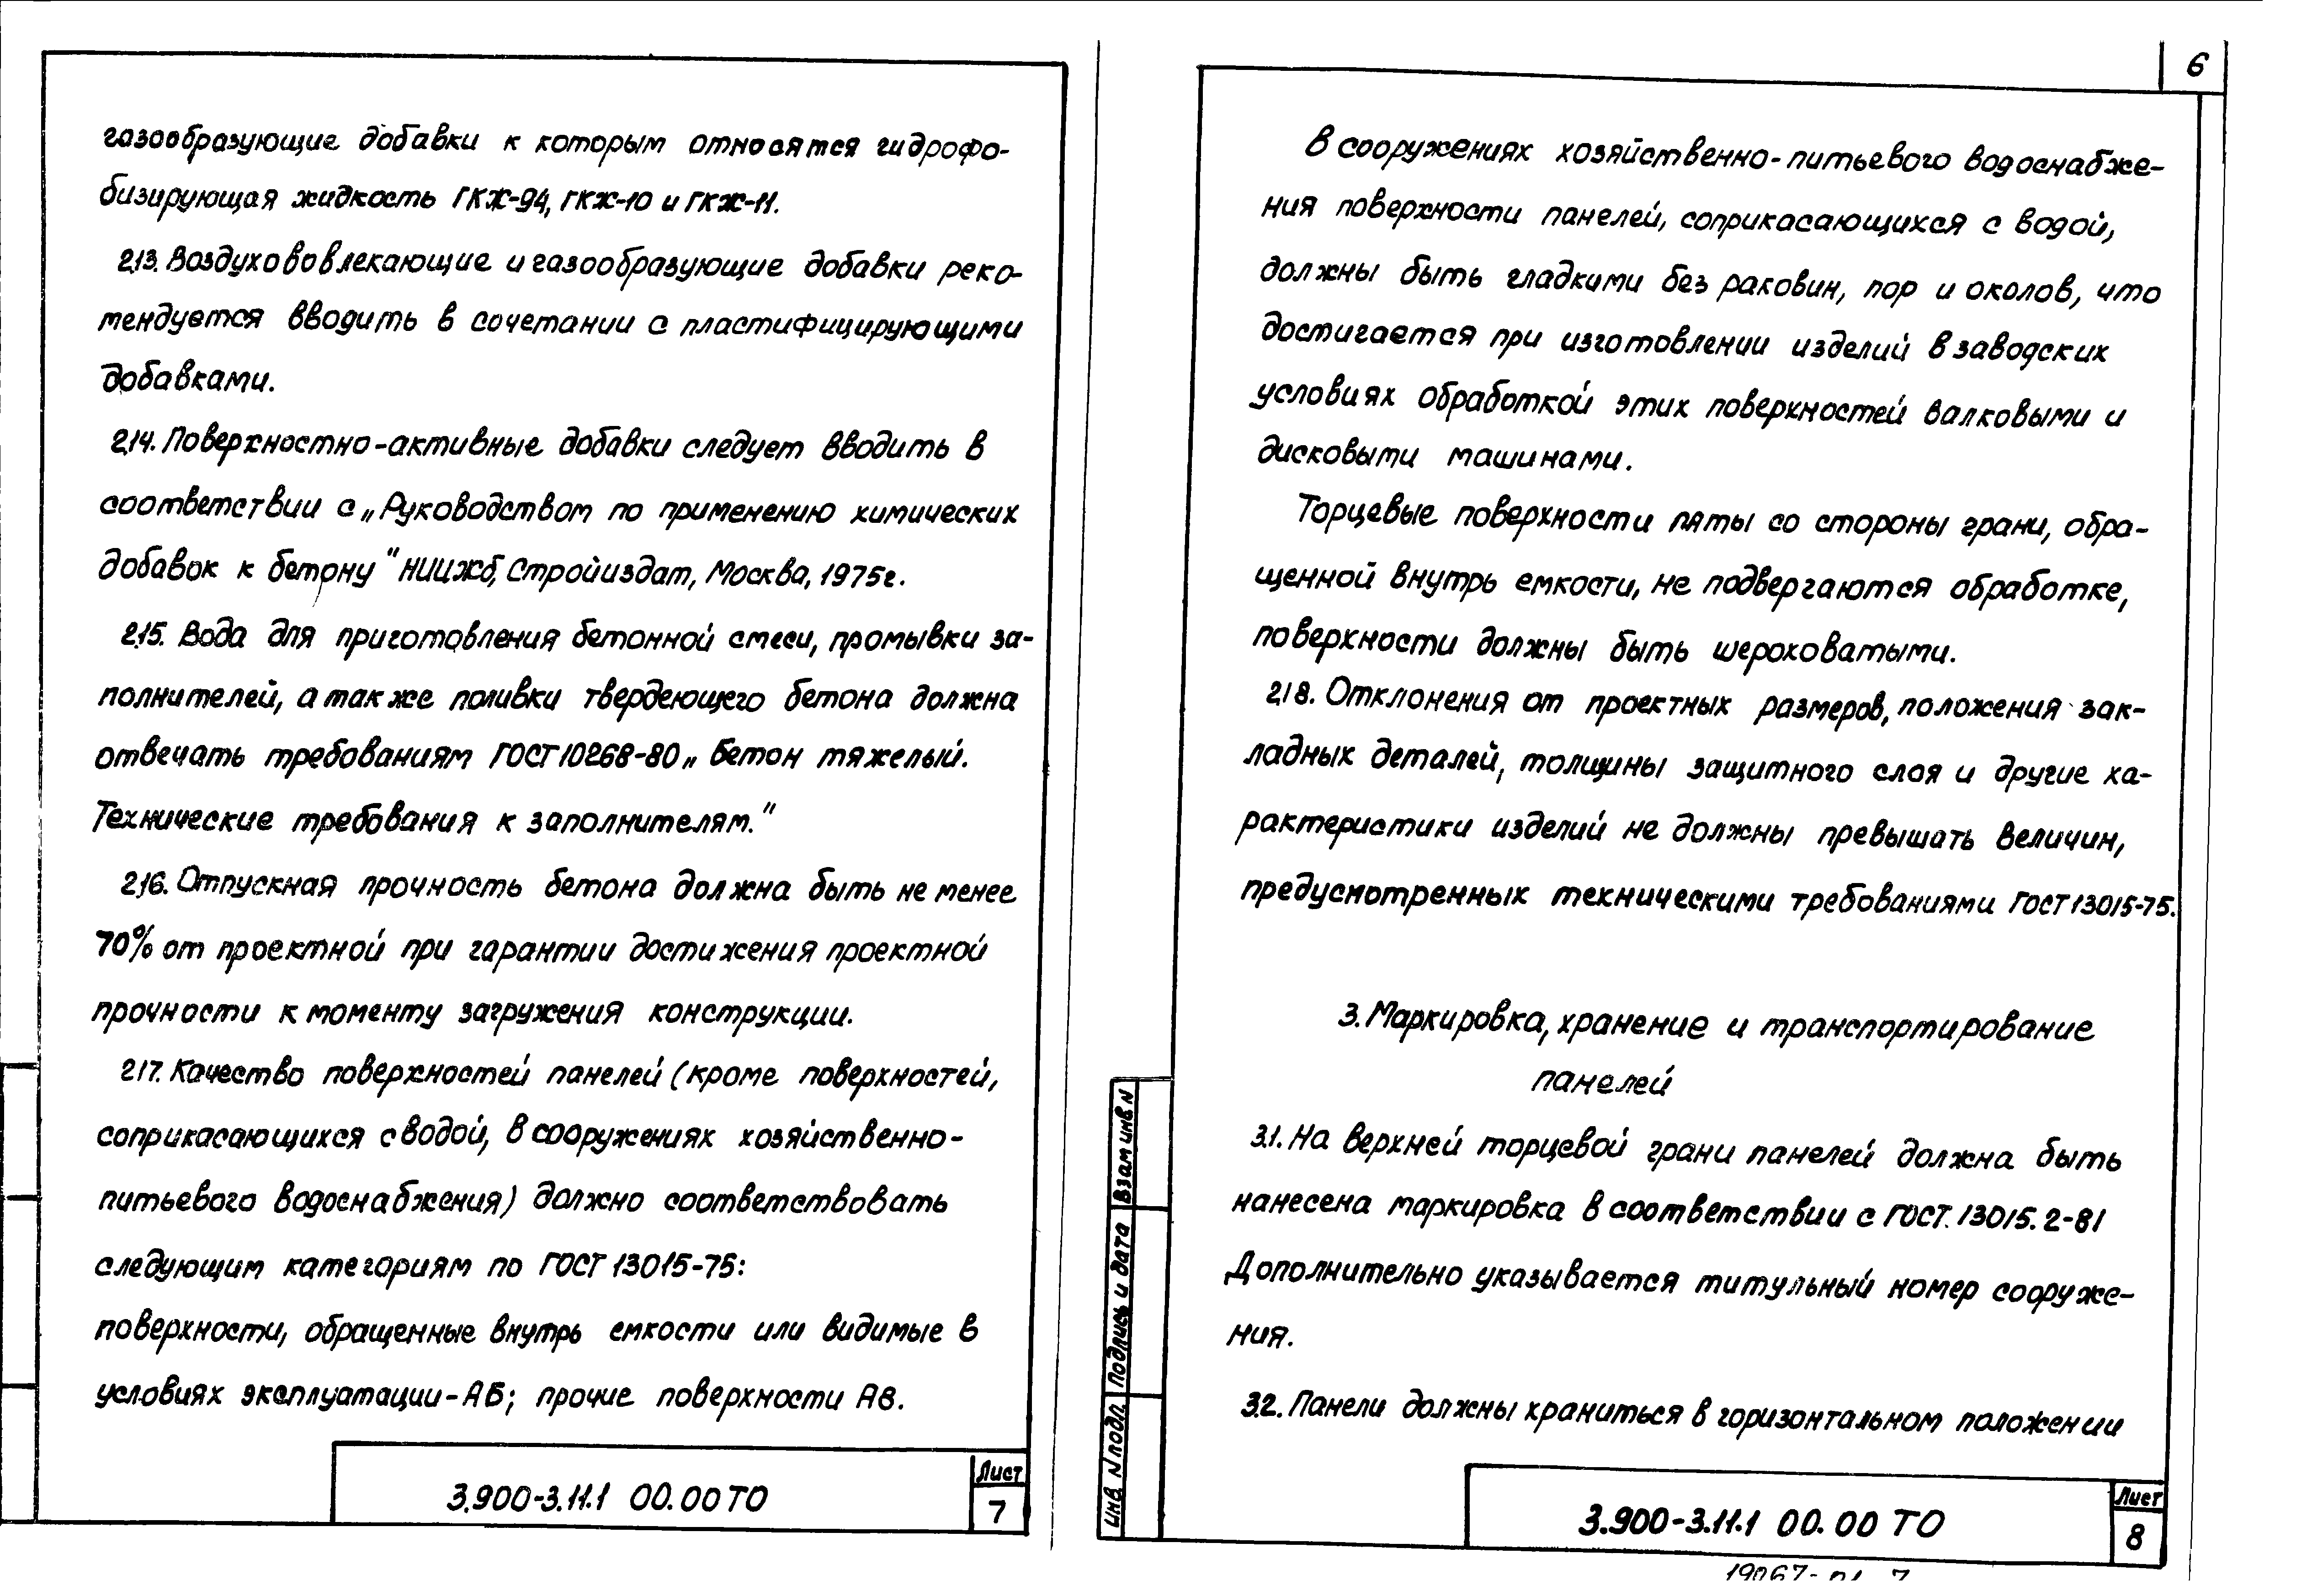 газообразующие добавки к которым относятся гидрофо-
бизирующая жидкость ГКЖ-94, ГКЖ-10 и ГКЖ-11.
2.13. Воздухововлекающие и газообразующие добавки реко-
мендуется вводить в сочетании с пластифицирующими
добавками.
2.14. Поверхностно-активные добавки следует вводить в
соответствии с „Руководством по применению химических
добавок к бетону" НИИЖб, Стройиздат, Москва, 1975г.
2.15. Вода для приготовления бетонной смеси, промывки за-
полнителей, а также поливки твердеющего бетона должна
отвечать требованиям ГОСТ 10268-80 „Бетон тяжелый.
Технические требования к заполнителям."
2.16. Отпускная прочность бетона должна быть не менее
70% от проектной при гарантии достижения проектной
прочности к моменту загружения конструкции.
2.17. Качество поверхностей панелей (кроме поверхностей,
соприкасающихся с водой, в сооружениях хозяйственно-
питьевого водоснабжения) должно соответствовать
следующим категориям по ГОСТ 13015-75:
поверхности, обращенные внутрь емкости или видимые в
условиях эксплуатации-АБ; прочие поверхности АВ.
3.900-3.11.1 00.00 ТО
Лист
7
6
В сооружениях хозяйственно-питьевого водоснабже-
ния поверхности панелей, соприкасающихся с водой,
должны быть гладкими без раковин, пор и околов, что
достигается при изготовлении изделий в заводских
условиях обработкой этих поверхностей валковыми и
дисковыми машинами.
Торцевые поверхности пяты со стороны грани, обра-
щенной внутрь емкости, не подвергаются обработке,
поверхности должны быть шероховатыми.
2.18. Отклонения от проектных размеров, положения зак-
ладных деталей, толщины защитного слоя и другие ха-
рактеристики изделий не должны превышать величин,
предусмотренных техническими требованиями ГОСТ 13015-75.
3. Маркировка, хранение и транспортирование
панелей
3.1. На верхней торцевой грани панелей должна быть
нанесена маркировка в соответствии с ГОСТ. 13015.2-81
Дополнительно указывается титульный номер сооруже-
ния.
3.2. Панели должны храниться в горизонтальном положении
Взам инв N
Подпись и дата
Инв. N подл.
3.900-3.11.1 00.00 ТО
Лист
8
19067-01 7